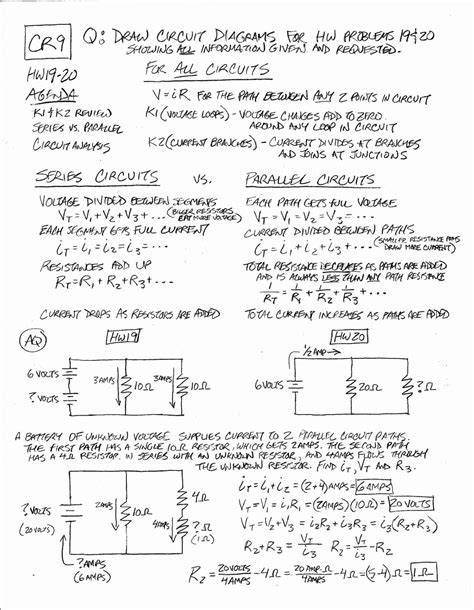 CR9
Q: DRAW CIRCUIT DIAGRAMS FOR HW PROBLEMS 19 & 20
SHOWING ALL INFORMATION GIVEN AND REQUESTED.
HW19-20
AGENDA
K1 & K2 REVIEW
SERIES VS. PARALLEL
CIRCUIT ANALYSIS
FOR ALL CIRCUITS
V = iR FOR THE PATH BETWEEN ANY 2 POINTS IN CIRCUIT
K1 (VOLTAGE LOOPS) - VOLTAGE CHANGES ADD TO ZERO
AROUND ANY LOOP IN CIRCUIT
K2 (CURRENT BRANCHES) - CURRENT DIVIDES AT BRANCHES
AND JOINS AT JUNCTIONS
SERIES CIRCUITS VS. PARALLEL CIRCUITS
VOLTAGE DIVIDED BETWEEN SEGMENTS
V_T = V_1 + V_2 + V_3 + ··· (BIGGER RESISTORS EAT MORE VOLTAGE)
EACH SEGMENT GETS FULL CURRENT
i_T = i_1 = i_2 = i_3 = ···
RESISTANCES ADD UP
R_T = R_1 + R_2 + R_3 + ···
CURRENT DROPS AS RESISTORS ARE ADDED
EACH PATH GETS FULL VOLTAGE
V_T = V_1 = V_2 = V_3 = ···
CURRENT DIVIDED BETWEEN PATHS
i_T = i_1 + i_2 + i_3 + ··· (SMALLER RESISTANCE PATHS DRAW MORE CURRENT)
TOTAL RESISTANCE DECREASES AS PATHS ARE ADDED
AND IS ALWAYS LESS THAN ANY PATH RESISTANCE
1/R_T = 1/R_1 + 1/R_2 + 1/R_3 + ···
TOTAL CURRENT INCREASES AS PATHS ARE ADDED
AQ
HW19
6 VOLTS
? VOLTS
3 AMPS
10Ω
3 AMPS
10Ω
HW20
1/2 AMP→
6 VOLTS
20Ω
?Ω
A BATTERY OF UNKNOWN VOLTAGE SUPPLIES CURRENT TO 2 PARALLEL CIRCUIT PATHS.
THE FIRST PATH HAS A SINGLE 10Ω RESISTOR, WHICH GETS 2 AMPS. THE SECOND PATH
HAS A 4Ω RESISTOR IN SERIES WITH AN UNKNOWN RESISTOR, AND 4 AMPS FLOWS THROUGH
THE UNKNOWN RESISTOR. FIND i_T, V_T AND R_3.
? VOLTS
(20 VOLTS)
2 AMPS
10Ω
4 AMPS
4Ω
?Ω
(1Ω)
? AMPS
(6 AMPS)
i_T = i_1 + i_2 = (2+4) AMPS = 6 AMPS
V_T = V_1 = i_1 R_1 = (2 AMPS)(10Ω) = 20 VOLTS
V_T = V_2 + V_3 = i_2 R_2 + i_3 R_3 = i_3 (R_2 + R_3)
R_2 + R_3 = V_T/i_3 R_3 = V_T/i_3 - R_2
R_2 = 20 VOLTS/4 AMPS - 4Ω = 20 AMP·Ω/4 AMPS - 4Ω = (5-4)Ω = 1Ω